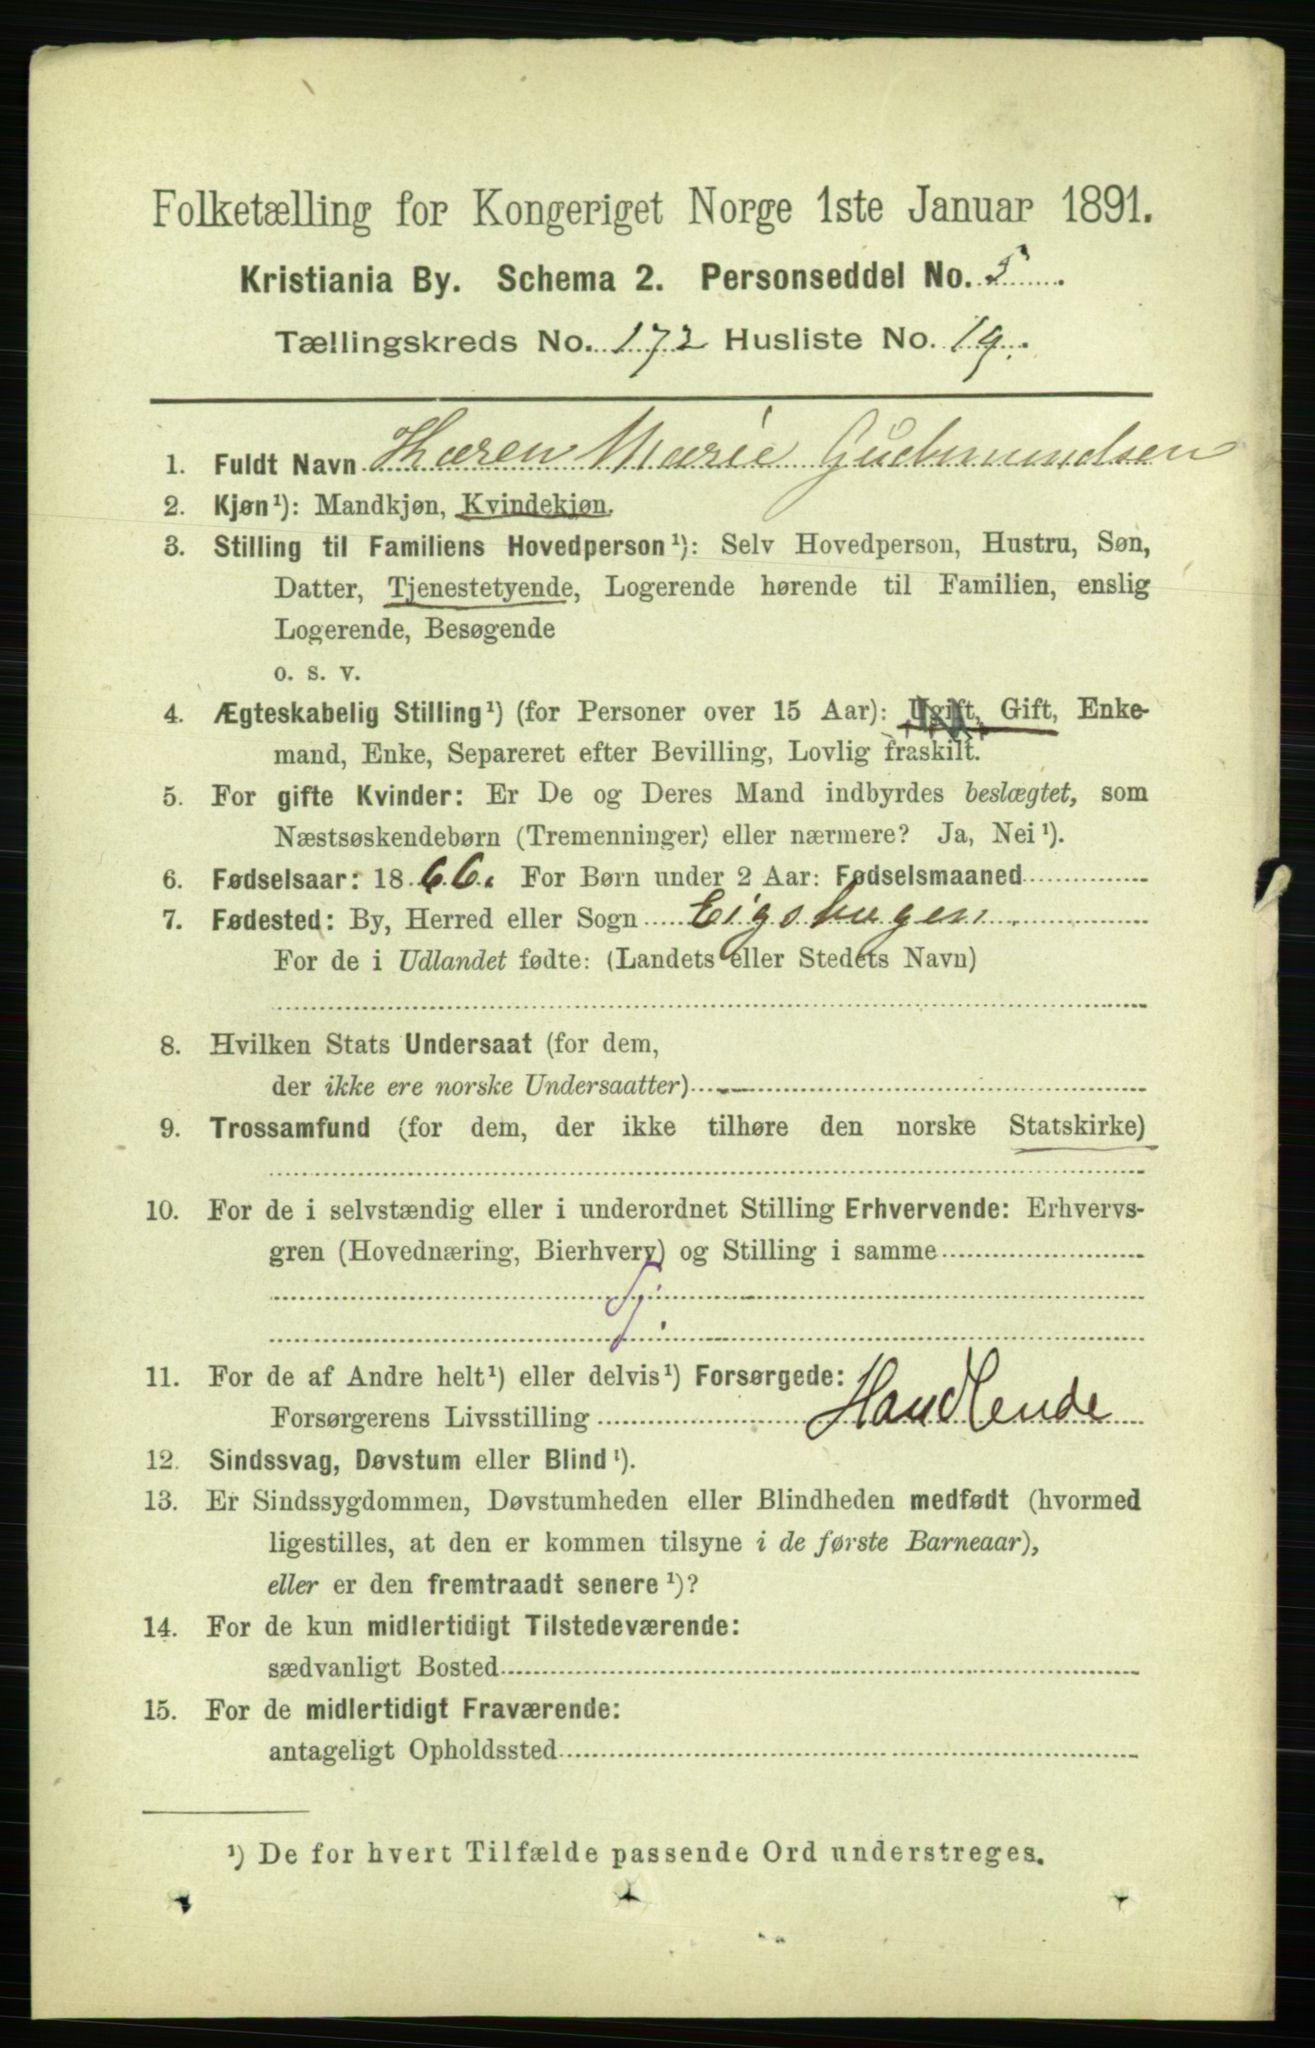 Folketælling for Kongeriget Norge 1ste Januar 1891.
Kristiania By. Schema 2. Personseddel No. 5.
Tællingskreds No. 172 Husliste No. 19.
1. Fuldt Navn Karen Marie Gudmundsen
2. Kjøn¹): Mandkjøn, Kvindekjøn.
3. Stilling til Familiens Hovedperson¹): Selv Hovedperson, Hustru, Søn,
Datter, Tjenestetyende, Logerende hørende til Familien, enslig
Logerende, Besøgende
o. s. v.
4. Ægteskabelig Stilling¹) (for Personer over 15 Aar): Ugift, Gift, Enke-
mand, Enke, Separeret efter Bevilling, Lovlig fraskilt.
5. For gifte Kvinder: Er De og Deres Mand indbyrdes beslægtet, som
Næstsøskendebørn (Tremenninger) eller nærmere? Ja, Nei¹).
6. Fødselsaar: 1866. For Børn under 2 Aar: Fødselsmaaned
7. Fødested: By, Herred eller Sogn
For de i Udlandet fødte: (Landets eller Stedets Navn)
8. Hvilken Stats Undersaat (for dem,
der ikke ere norske Undersaatter)
9. Trossamfund (for dem, der ikke tilhøre den norske Statskirke)
10. For de i selvstændig eller i underordnet Stilling Erhvervende: Erhvervs-
gren (Hovednæring, Bierhverv) og Stilling i samme
Tj.
11. For de af Andre helt¹) eller delvis¹) Forsørgede:
Forsørgerens Livsstilling Handlende
12. Sindssvag, Døvstum eller Blind¹).
13. Er Sindssygdommen, Døvstumheden eller Blindheden medfødt (hvormed
ligestilles, at den er kommen tilsyne i de første Barneaar),
eller er den fremtraadt senere¹)?
14. For de kun midlertidigt Tilstedeværende:
sædvanligt Bosted
15. For de midlertidigt Fraværende:
antageligt Opholdssted
¹) De for hvert Tilfælde passende Ord understreges.